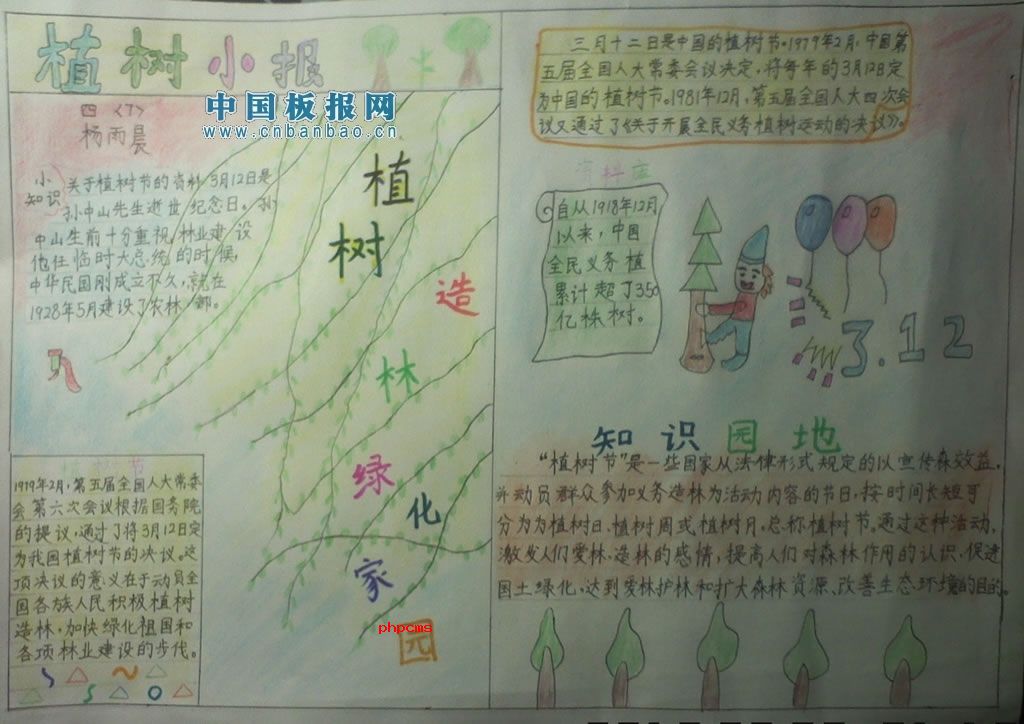 植树小报
中国板报网
www.cnbanbao.cn
四〈7〉
杨雨晨
小知识
关于植树节的资料 3月12日是
孙中山先生逝世纪念日。孙
中山生前十分重视林业建设
他任临时大总统的时候,
中华民国刚成立不久,就在
1928年5月建设了农林部。
植树节
1979年2月,第五届全国人大常委
会第六次会议根据国务院
的提议,通过了将3月12日定
为我国植树节的决议。这
项决议的意义在于动员全
国各族人民积极植树
造林,加快绿化祖国和
各项林业建设的步伐。
植
树
造
林
绿
化
家
园
phpcms
三月十二日是中国的植树节。1979年2月,中国第
五届全国人大常委会议决定,将每年的3月12日定
为中国的植树节。1981年12月,第五届全国人大四次会
议又通过了《关于开展全民义务植树运动的决议》。
资料库
自从1918年12月
以来,中国
全民义务植
累计超了350
亿株树。
3.12
知识园地
“植树节”是一些国家从法律形式规定的以宣传森效益,
并动员群众参加义务造林为活动内容的节日,按时间长短可
分为为植树日、植树周或植树月,总称植树节。通过这种活动,
激发人们爱林、造林的感情,提高人们对森林作用的认识,促进
国土绿化,达到爱林护林和扩大森林资源、改善生态环境的目的。